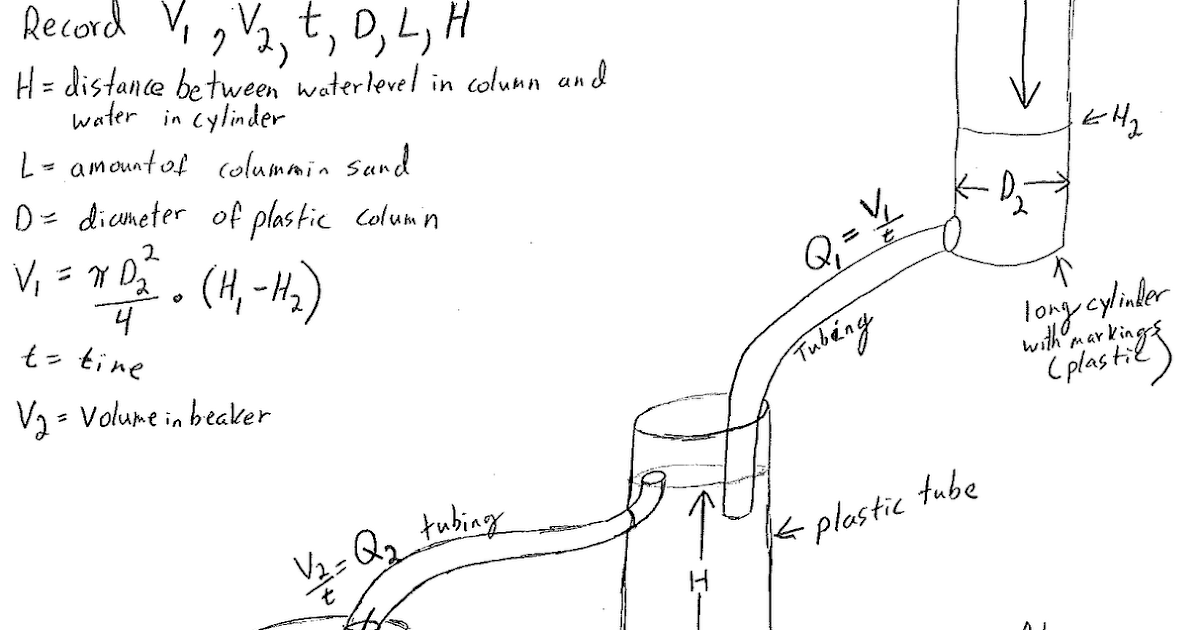 Record V₁, V₂, t, D, L, H
H = distance between waterlevel in column and
water in cylinder
L = amount of columnin sand
D = diameter of plastic column
V₁ = πD₂²/4 • (H₁-H₂)
t = time
V₂ = Volume in beaker
←H₂
←D₂→
Q₁ = V₁/t
Tubing
long cylinder
with markings
(plastic)
plastic tube
tubing
V₂/t = Q₂
H